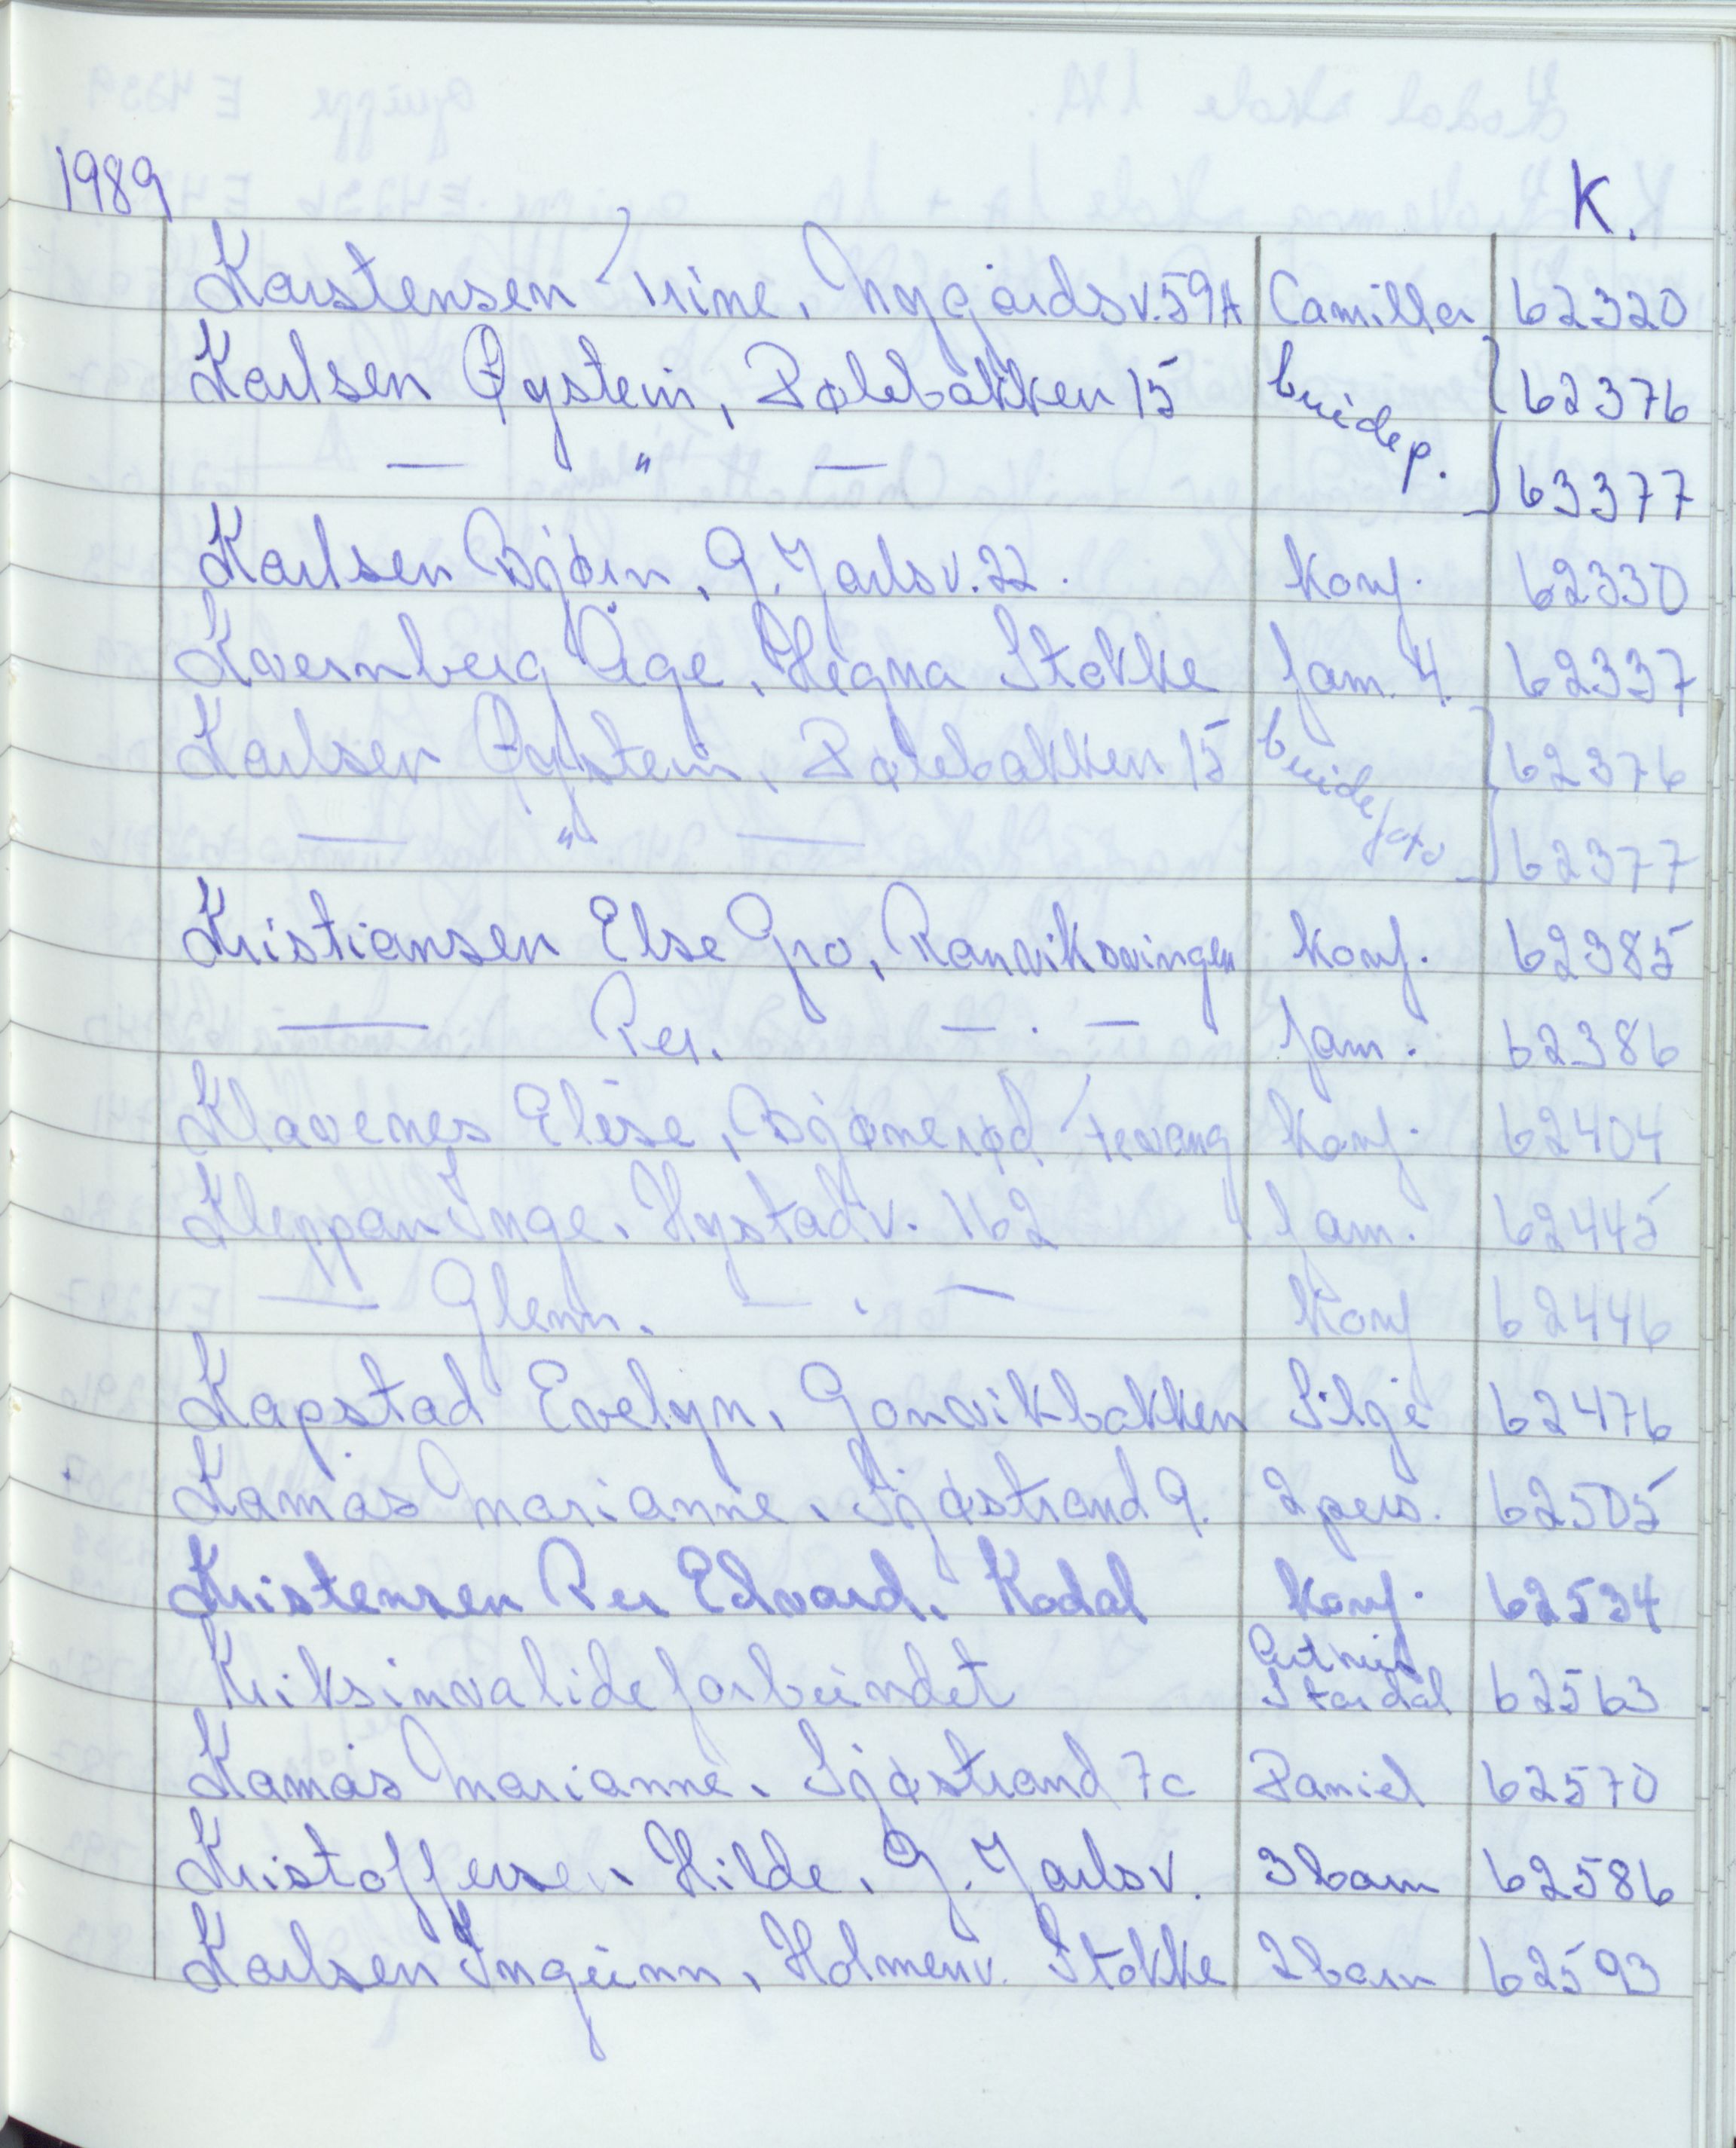 1989 K.
Karstensen Trine, Nygårdsv. 59A Camilla 62320
Karlsen Øystein, Dølebakken 15 brudep. 62376
— " — 63377
Karlsen Bjørn, G. Jarlsv. 22. konf. 62330
Kvernberg Åge, Hegna Stokke fam. 4. 62337
Karlsen Øystein, Dølebakken 15 brudefoto 62376
— " — 62377
Kristiansen Else Gro, Ranviksvingen konf. 62385
— Per. — . — fam. 62386
Klavenes Elise, Bjønerød Tevang konf. 62404
Kleppan Inge, Hystadv. 162 fam. 62445
— Glenn. — . — konf 62446
Kapstad Evelyn, Gonvikbakken Silje 62476
Kamås Marianne, Sjøstrand 9. 2 pers. 62505
Kristensen Per Edvard, Kodal konf. 62534
Kriksinvalideforbundet Stardal 62563
Kamås Marianne, Sjøstrand 7c Daniel 62570
Kristoffersen Hilde, G. Jarlsv. 3 barn 62586
Karlsen Ingunn, Holmenv. Stokke 2 barn 62593